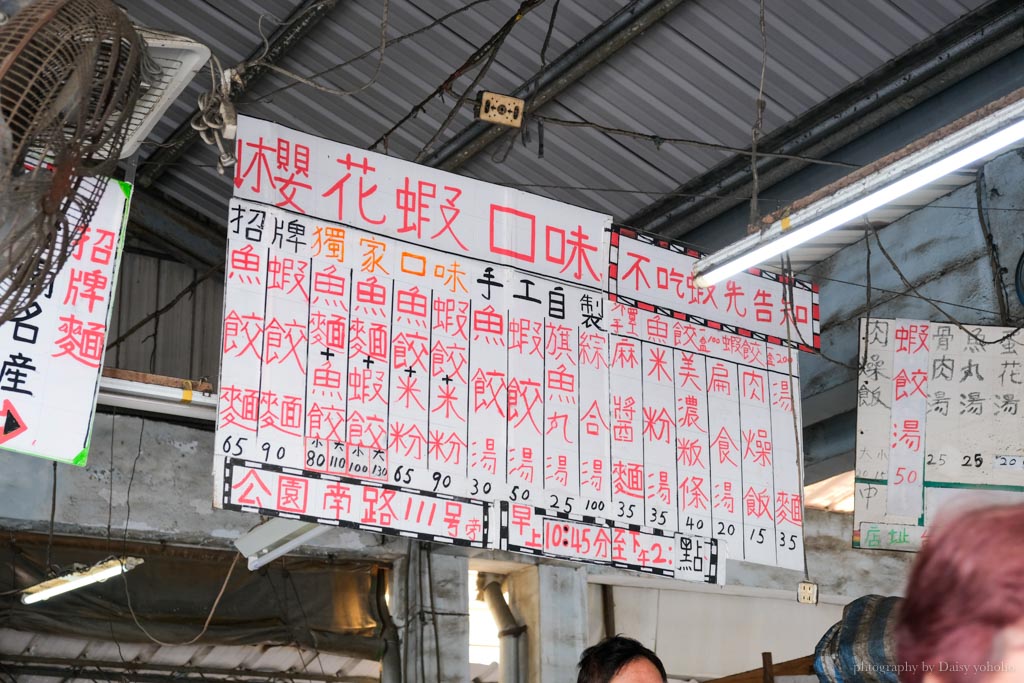 招牌麵
名產
休櫻花蝦口味
不吃蝦先告知
招牌 獨家口味 手工自製
魚餃盒100 蝦餃盒200
魚餃麵 65
蝦餃麵 90
魚麵+魚餃 小80 大110
魚麵+蝦餃 小100 大130
魚餃+米粉 65
蝦餃+米粉 90
魚餃湯 30
蝦餃湯 50
旗魚丸湯 25
綜合湯 100
麻醬麵 35
米粉湯 35
美濃粄條 40
扁食湯 20
肉燥飯 15
湯麵 35
公園南路111號旁
早上10:45分至下午2:點
肉燥飯 大 小 中
蝦餃湯 50
骨肉湯 25
魚丸湯 25
蛋花湯 20
店址
phtography by Daisy yohoho